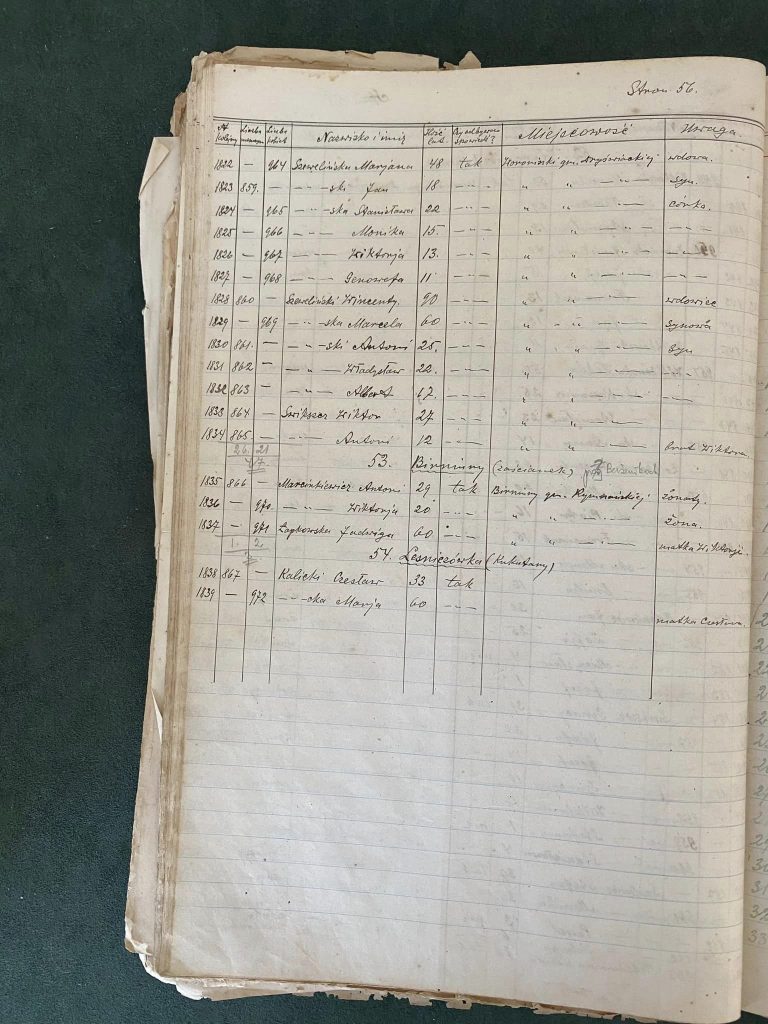 Stron. 56.
№ kolejny Liczba mężczyzn Liczba kobiet Nazwisko i imię Ilość lat Czy odbywa spowiedź? Miejscowość Uwaga.
1822 — 964 Szewelińska Marjana 48 tak gm. wdowa.
1823 859. — —"—ski Jan 18 —"— " " —"— syn.
1824 — 965 —"—ska Stanisława 22 —"— " " —"— córka.
1825 — 966 —"— Monika 15. —"— " " —"— —"—
1826 — 967 —"— Wiktorja 13. —"— " " —"— —"—
1827 — 968 —"— Genowefa 11 —"— " " —"— —"—
1828 860 — Szeweliński Wincenty. 90 —"— " " —"— wdowiec
1829 — 969 —"—ska Marcela 60 —"— " " —"— synowa
1830 861. — —"—ski Antoni 25. —"— " " —"— syn
1831 862 — —"— Władysław 22. —"— " " —"— —"—
1832 863 — —"— Albert 17. —"— " " —"— —"—
1833 864 — Swikszcz Wiktor 27 —"— " " —"—
1834 865 — —"— Antoni 12 —"— " " —"— brat Wiktora.
26. 21
47
53. Birminy (zaścianek)
1835 866 — Marcinkiewicz Antoni 29 tak Birminy gm. żonaty.
1836 — 970. —"— Wiktorja 20 —"— " " —"— żona.
1837 — 971 Łapkowska Jadwiga 60 —"— " " —"— matka Wiktorji.
1. 2.
54. Leśniczówka (Kukutany)
1838 867 — Kalicki Czesław 33 tak
1839 — 972 —"—cka Marja 60 —"— matka Czesława.